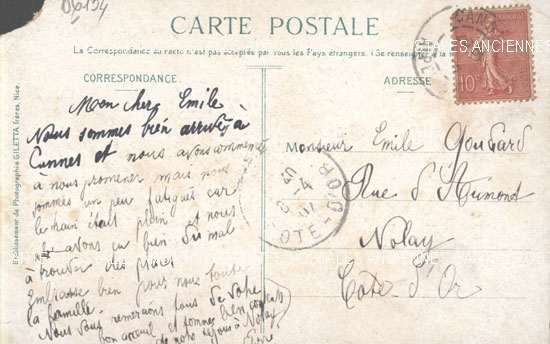 D62194
CARTE POSTALE
La Correspondance au recto n'est pas acceptée par tous les Pays étrangers. (Se renseigner à la
CORRESPONDANCE.
ADRESSE
Mon cher Emile
Nous sommes bien arrivés à
Cannes et nous avons commencé
à nous promener mais nous
sommes un peu fatigués car
le train était plein et nous
avons eu bien du mal
à trouver des places
Embrasse bien pour nous toute
la famille.
Nous vous remercions tous de votre
bon accueil et sommes bien contents
de notre séjour à Nolay
Monsieur Emile Goudard
Rue d'Aumont
Nolay
Côte d'Or
10c
CÔTE-D'OR
Etablissement de Photographie GILETTA frères, Nice.
CPILES ANCIENNES